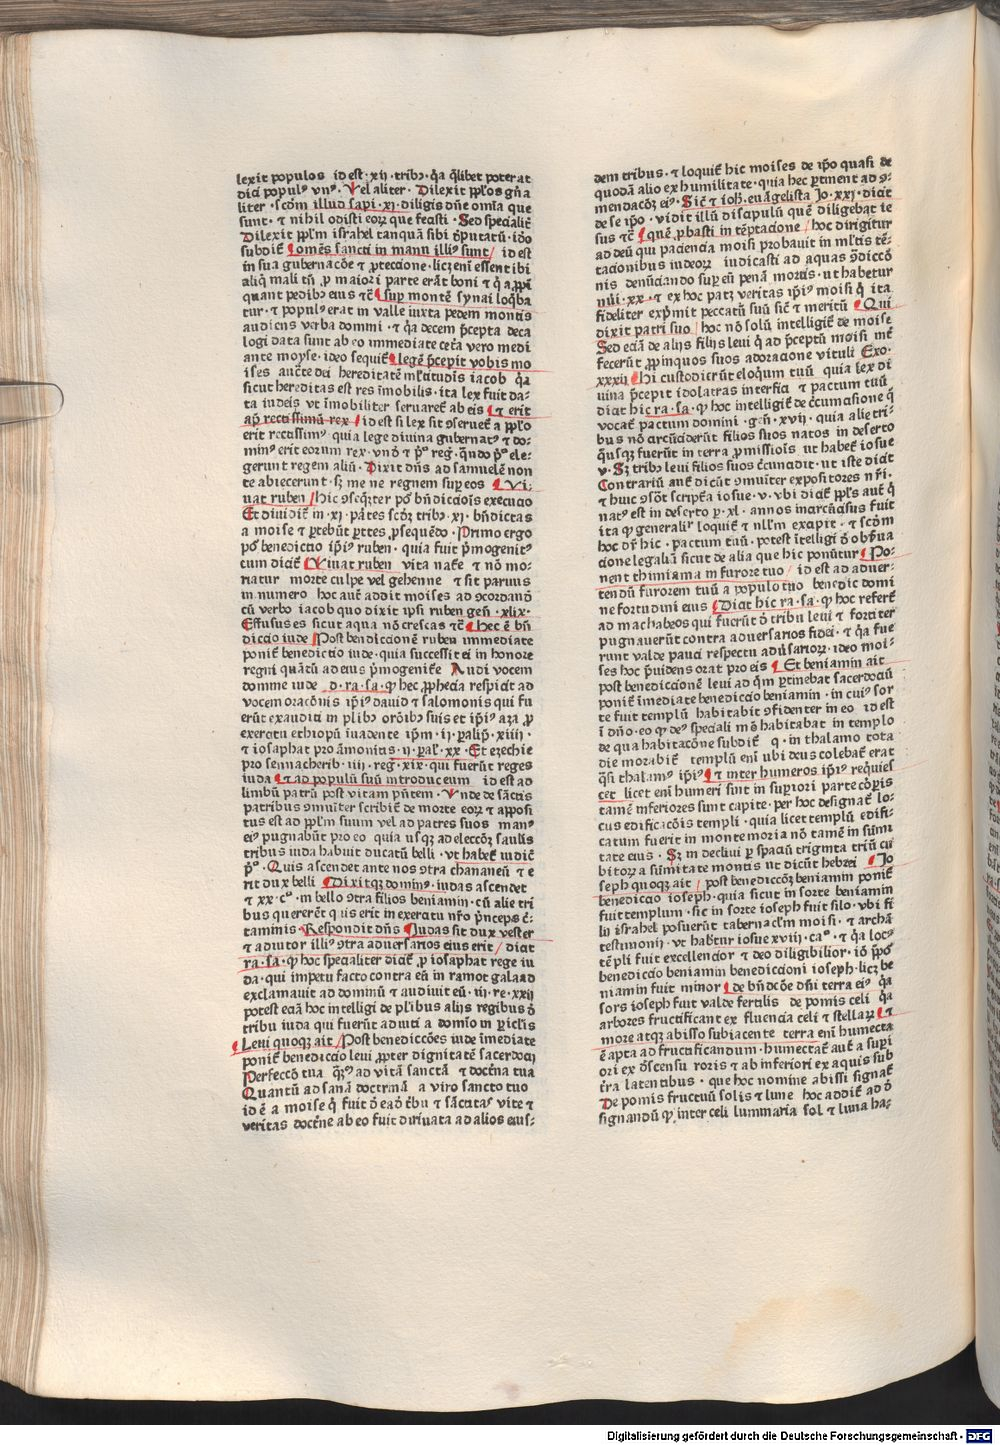 lexit populos id est · xij · tribꝰ · q̄a q̄libet poterat
dici populꝰ vnꝰ · Vel aliter · Dilexit pp̄los gn̄a
liter · scd̄m illud sapi · xj · diligis dn̄e om̄ia que
sunt · ⁊ nihil odisti eoꝝ que fecisti · Sed speciali
Dilexit pp̄lm israhel tanquā sibi deputatū · iō
subdit̄ ¶ omēs sancti in manu illiꝰ sunt / id est
in sua gubernacōe ⁊ ꝓteccione · licꝫ eni essent ibi
aliq̄ mali tn̄ ꝓ maiori parte erāt boni ⁊ q̄ aꝓpi
quant pedibꝰ eius ⁊c̄ ¶ suꝑ montē synai loq̄ba
tur · ⁊ populꝰ erat in valle iuxta pedem montis
audiens verba domini · ⁊ q̄a decem p̄cepta deca
logi data sunt ab eo immediate cet̄a vero medi
ante moyse · ideo sequit̄ ¶ legē p̄cepit vobis mo
ises aucte dei hereditatē ml̄titudis iacob q̄a
sicut hereditas est res īmobilis · ita lex fuit da-
ta iudeis vt īmobiliter seruaret̄ ab eis ¶ ⁊ erit
ap̄ rectissimū rex / id est si lex sit ꝯseruet̄ a pp̄lo
erit rectissimꝰ quia lege diuina gubernatꝰ ⁊ do-
minꝰ erit eorum rex vnō ⁊ p̄º reḡ · qn̄do pº ele-
gerunt regem aliū · Dixit dn̄s ad samuelē non
te abiecerunt · sꝫ me ne regnem suꝑ eos ¶ Vi-
uat ruben / Hic ꝯseq̄ter pōt bn̄diccōis execucio
Et diuidit̄ in · xj · p̄ates scd̄ꝫ tribꝰ · xj · bn̄dictas
a moise ⁊ ꝑtebūt ꝑtes ꝓsequēdo · Primo ergo
pōt benedictio ip̄iꝰ ruben · quia fuit p̄mogenitꝰ
cum dicit̄ ¶ Viuat ruben vita nat̄e ⁊ nō mo-
riatur morte culpe vel gehenne ⁊ sit paruus
in numero hoc aut̄ addit moises ad ꝯcordandū
cū verbo iacob quo dixit ip̄si ruben gen̄ · xlix ·
Effusus es sicut aqua nō crescas ⁊c̄ ¶ Hec ē bn̄
diccio iude / Post bendiccionē ruben immediate
ponit̄ benedictio iude · quia successit ei in honore
regni quātū ad eius p̄mogenit̄e Audi vocem
domine iude · d · ra · sa · qͥ hec ꝓphecia respicit ad
vocem oracōnis ip̄iꝰ dauid ⁊ salomonis qui fu
erūt exauditi in plibꝰ orōibꝰ suis ⁊ ip̄iꝰ aza ꝓ
exercitu ethiopū īuadente ip̄m · ij · ꝑalip̄ · xiiij ·
⁊ iosaphat pro āmonitas · ij · pal̄ · xx · Et ezechie
pro sennacherib · iiij · reḡ · xix · qui fuerūt reges
iuda ¶ ⁊ ad populū suū introduceum id est ad
limbū patrū post vitam pn̄tem · Vnde de sāctis
patribus ꝯmuīter scribit̄ de morte eoꝝ ⁊ apposi
tus est ad pp̄lm suum vel ad patres suos manꝰ
eiꝰ pugnabūt pro eo quia usqꝫ ad eleccōꝫ saulis
tribus iuda habuit ducatū belli · vt habet̄ iudic̄
pº · Quis ascendet ante nos ꝯtra chananeū ⁊ e
rit dux belli ¶ Dixitqꝫ dominꝰ · iudas ascendet
⁊ · xx · cº · in bello ꝯtra filios beniamin · cū alie tri
bus quererēt quis erit in exercitu nr̄o p̄nceps c̄-
taminis · Respondit dn̄s ¶ Judas sit dux vester
⁊ adiutor illiꝰ ꝯtra aduersarios eius erit / dicit
ra · sa · qͥ hoc specialiter dicit̄ ꝓ iosaphat rege iu
da · qui impetu facto contra eū in ramot galaad
exclamauit ad dominū ⁊ audiuit eū · iij · re · xxij
potest eciā hoc intelligi de pl̄ibus alijs regibus ō
tribu iuda qui fuerūt adiuti a domīo in ꝑiclis
¶ Leui quoqꝫ ait / Post benediccōes iude īmediate
ponit̄ benediccio leui ꝓpter dignitatē sacerdocij
Perfeccō tua q̄ꝫº ad vitā sanctā ⁊ doct̄na tua
Quantū ad sanā doctrinā a viro sancto tuo
id ē a moise q̄ fuit ō eadē tribu ⁊ sāctitas vite ⁊
veritas doct̄ne ab eo fuit diriuata ad alios eius-
dem tribus · ⁊ loquit̄ hic moises de ip̄o quasi de
quodā alio ex humilitate · quia hec ꝑtinent ad ꝯ-
mendacōꝫ eiꝰ · Sic̄ ⁊ ioh̄ · euāgelista Jo · xxj · dicit
de se ip̄o · vidit illū discipulū quē diligebat ie
sus ⁊c̄ ¶ quē ꝓbasti in tēptacione / hoc dirigitur
ad deū qui paciencia moisi probauit in ml̄tis tē-
tacionibus iudeoꝝ iudicasti ad aquas ꝯdiccō
nis denūciando suꝑ eū penā mortis · ut habetur
nūi · xx · ⁊ ex hoc patꝫ veritas ip̄iꝰ moisi q̄ ita
fideliter exp̄mit peccatū suū sic̄ ⁊ meritū ¶ Qui
dixit patri suo / hoc nō solū intelligit̄ de moise
Sed eciā de alijs filijs leui q̄ ad p̄ceptū moisi int̄
fecerūt ꝓpinquos suos adoracione vituli Exo ·
xxxij ¶ hi custodierūt eloq̄um tuū quia lex di
uina p̄cepit idolatras interfici ⁊ pactum tuū
dicit hic ra · sa · qͥ hoc intelligit̄ de c̄cumcisione q̄
vocat̄ pactum domini · gen̄ · xvij · quia alie tri-
bus nō circūciderūt filios suos natos in deserto
qͦusqꝫ fuerūt in terra ꝓmissiois ut habet̄ iosue
v · Sꝫ tribꝰ leui filios suos c̄cūcidit · ut iste dicit
Contrariū aut̄ dicūt ꝯmuīter expositores nr̄i ·
⁊ huic ꝯsōt scriptā iosue · v · vbi dicit̄ pp̄ls aut̄ q̄
natꝰ est in deserto ꝑ · xl · annos incircūcisus fuit
ita qͥ generalit̄ loquit̄ ⁊ nll̄m excipit · ⁊ scd̄m
hoc dr̄ hic · pactum tuū · potest ītelligi ō obƥua
cione legaliū sicut de alia que hic ponūtur ¶ Po-
nent thimiama in furore tuo / id est ad aduer-
tendū furorem tuū a populo tuo benedic domi
ne fortitudini eius ¶ Dicit hic ra · sa · qͥ hoc refert̄
ad machabeos qui fuerūt ō tribu leui ⁊ fortiter
pugnauerūt contra aduersarios fidei · ⁊ q̄a fue
runt valde pauci respectu adūsarioꝝ · ideo moi-
ses hoc p̄uidens orat pro eis ¶ Et beniamin ait
post benediccionē leui ad q̄m ꝑtinebat sacerdociū
ponit̄ īmediate benediccio beniamin · in cuiꝰ sor
te fuit templū habitabit ꝯfidenter in eo id est
ī dn̄o · eo qͥ deꝰ speciali mō habitabat in templo
de qua habitacōne subdit̄ q · in thalamo tota
die morabit̄ templū eni ubi deus colebat̄ erat
q̄si thalamꝰ ip̄iꝰ ¶ ⁊ inter humeros ip̄iꝰ requies
cet licet eni humeri sint in suꝑiori parte corꝑis
tamē inferiores sunt capite · per hoc designat̄ lo-
cus edificacōis templi · quia licet templū edifi-
catum fuerit in monte moria nō tamē in sūmi
tate eius · Sꝫ in decliui ꝑ spaciū triginta triū cu
bitoꝝ a sūmitate montis ut dicūt hebrei ¶ Jo
seph quoqꝫ ait / post benediccōꝫ beniamin ponit̄
benediccio ioseph · quia sicut in sorte beniamin
fuit templum · sic in sorte ioseph fuit silo · vbi fi
lij israhel posuerūt tabernacl̄m moisi · ⁊ archā
testimonij · vt habetur iosue xviij · caº · ⁊ q̄a locꝰ
tēpli fuit excellencior ⁊ deo diligibilior · iō p̄pōt
benediccio beniamin benediccioni ioseph · licꝫ be
niamin fuit minor ¶ de bn̄dcōe dn̄i terra eiꝰ q̄a
sors ioseph fuit valde fertilis de pomis celi q̄a
arbores fructificant ex fluencia celi ⁊ stellaꝝ ¶ ⁊
more atqꝫ abisso subiacente terra eni humecta
ē apta ad fructificandum · humectat̄ aut̄ a suꝑi
ori ex ōscensu roris ⁊ ab inferiori ex aquis sub
t̄ra latentibus · que hoc nomine abissi signat̄
De pomis fructuū solis ⁊ lune hoc addit̄ ad ō
signandū qͥ inter celi luminaria sol ⁊ luna ha-
Digitalisierung gefördert durch die Deutsche Forschungsgemeinschaft - DFG